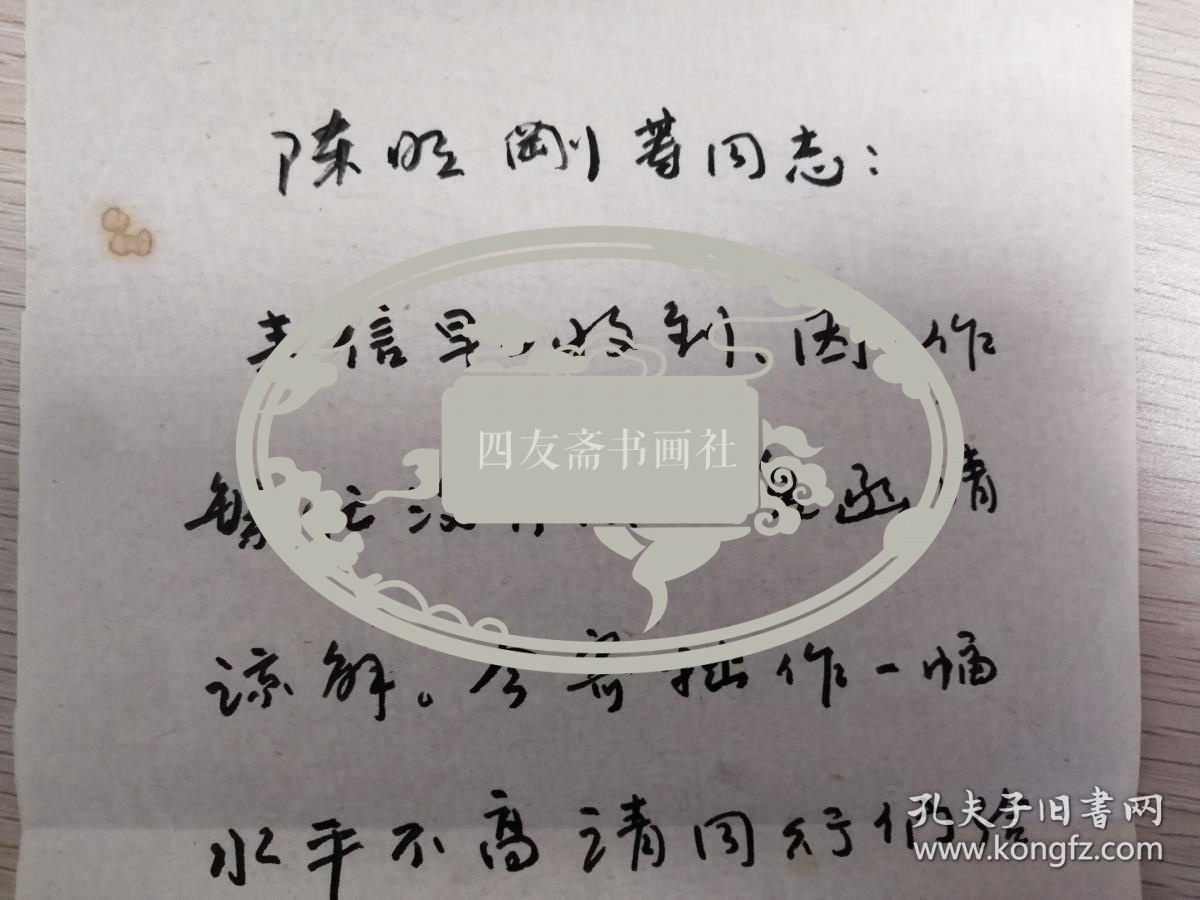 陈明刚等同志：
来信早已收到、因工作
繁忙没有 函请
谅解。今寄拙作一幅
水平不高请同行们给
四友斋书画社
孔夫子旧书网
www.kongfz.com